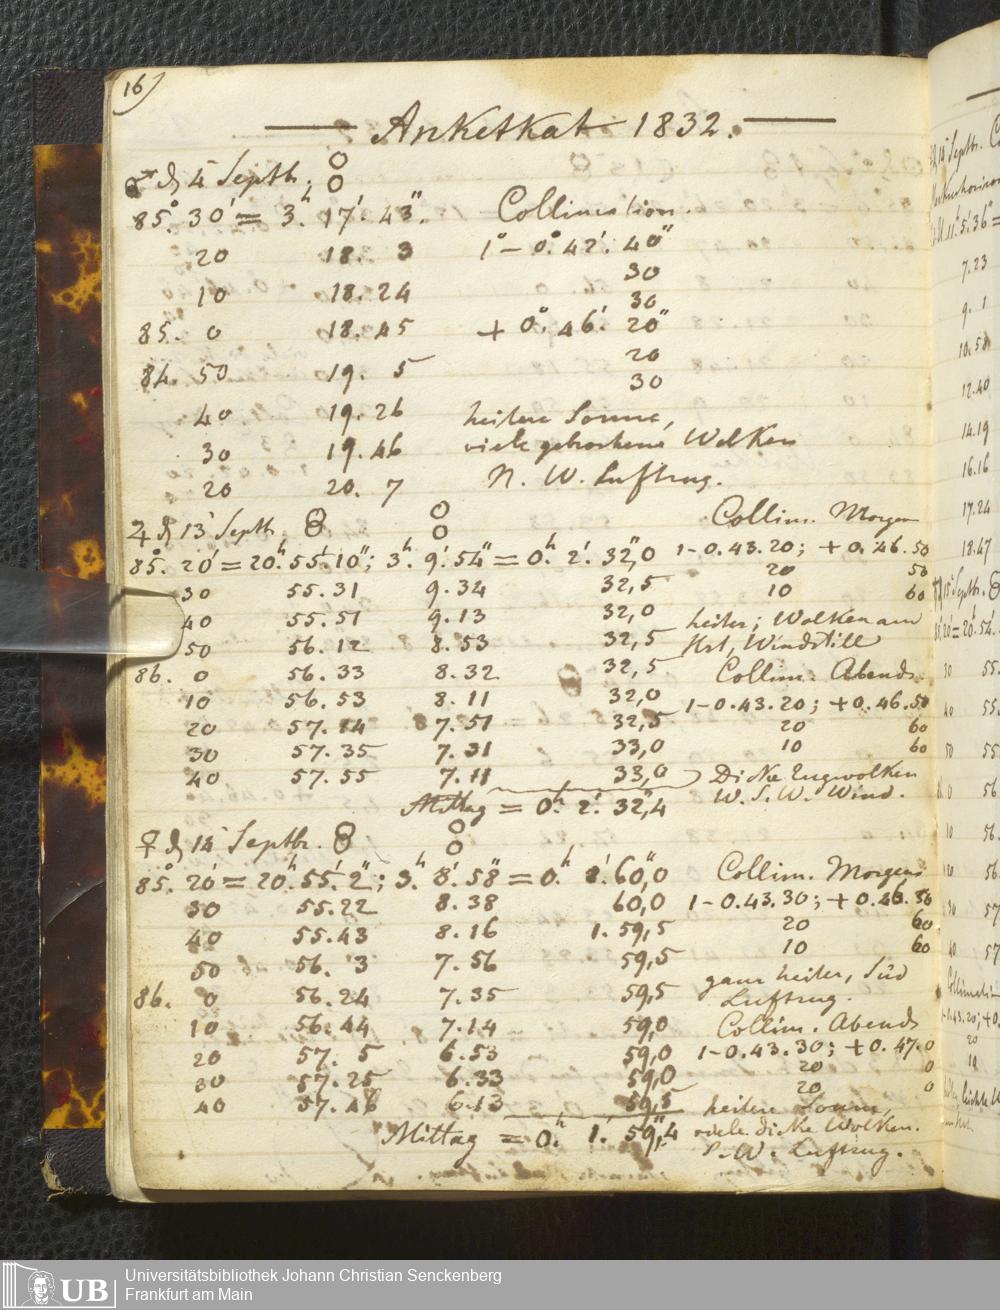 16)
Anketkat 1832.
♂ d 4' Septbr.
85°. 30' = 3.h 17'. 43". Collimation.
20 18. 3 1°- 0°. 42'. 40"
30
10 18. 24 30
85. 0 18. 45 + 0°. 46'. 20"
20
84. 50 19. 5 30
40 19. 26 heitere Sonne,
30 19. 46 viele gebrochene Wolken
20 20. 7 N. W. Luftzug.
♃ d 13' Septb. Collim. Morgen
85°. 20' = 20h. 55'. 10"; 3h. 9'. 54" = 0h. 2'. 32",0 1-0.43.20; +0.46.50
30 55. 31 9. 34 32,5 20 50
40 55. 51 9. 13 32,0 10 60
50 56. 12 8. 53 32,5 heiter; Wolken am
Hrt, Windstill
86. 0 56. 33 8. 32 32,5 Collim. Abends
10 56. 53 8. 11 32,0 1-0.43.20; +0.46.50
20 57. 14 7. 51 32,5 20 60
30 57. 35 7. 31 33,0 10 60
40 57. 55 7. 11 33,0 Dicke Zugwolken
Mittag = 0h. 2'. 32",4 W. S. W. Wind.
♀ d 14' Septbr.
85°. 20' = 20h. 55'. 2"; 3.h 8'. 58" = 0.h 1'. 60",0 Collim. Morgens
30 55. 22 8. 38 60,0 1-0.43.30; +0.46.50
40 55. 43 8. 16 1. 59,5 20 60
50 56. 3 7. 56 59,5 10 60
86. 0 56. 24 7. 35 59,5 ganz heiter, Süd
Luftzug.
10 56. 44 7. 14 59,0 Collim. Abends
20 57. 5 6. 53 59,0 1-0.43.30; +0.47.0
30 57. 25 6. 33 59,0 20 0
40 57. 46 6. 13 59,5 20 0
heitere Sonne,
Mittag = 0.h 1'. 59",4 viele dicke Wolken.
W. Luftzug.
7.23
9. 1
10.58
12.40
14.19
16.16
17.24
18.47
UB
Universitätsbibliothek Johann Christian Senckenberg
Frankfurt am Main